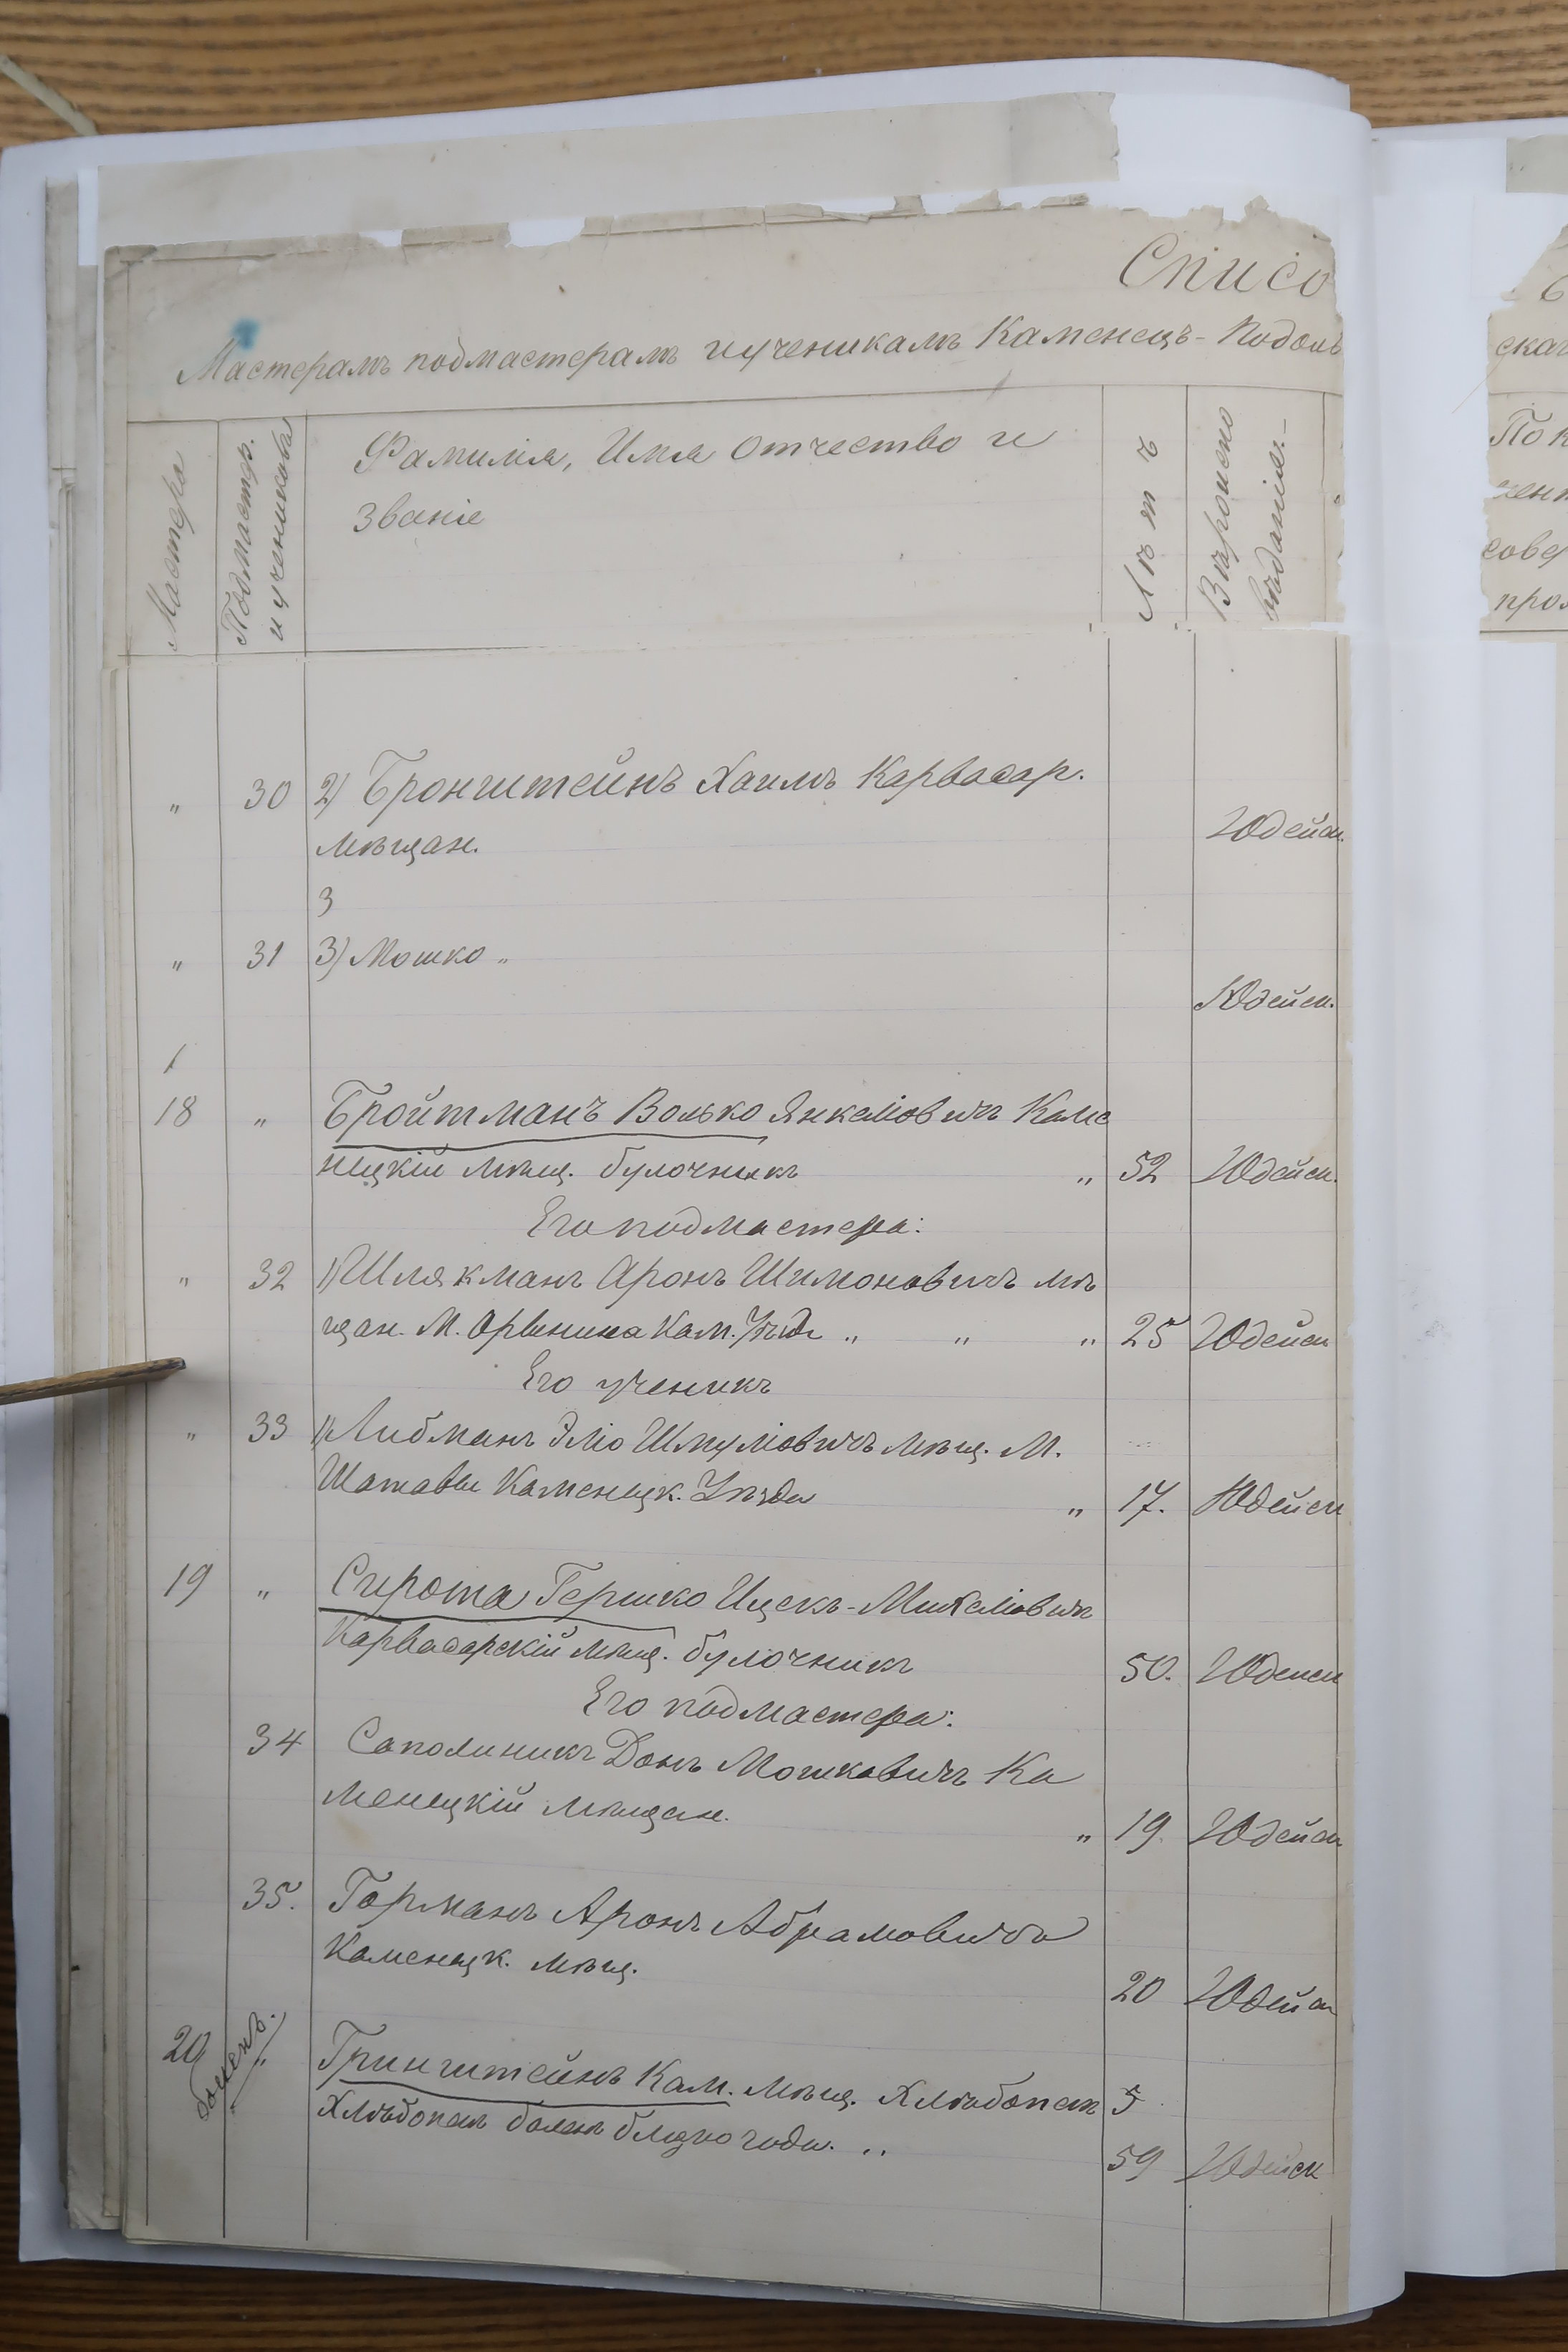 Списо
Мастерамъ подмастерамъ и ученикамъ Каменецъ-Подоль
Мастера
Подмастер.
и учениковъ
Фамилія, Имя Отчество и
Званіе
Лѣтъ
Вѣроиспо
вѣданія.
" 30 2) Бронштейнъ Хаимъ Карвасар.
мѣщан. Юдейск.
3
" 31 3) Мошко "
Юдейск.
1
18 " Бройтманъ Волько Янкеліовичъ Каме
нецкій мѣщ. булочникъ " 52 Юдейск.
Его подмастера:
" 32 1) Шлякманъ Аронъ Шимоновичъ мѣ
щан. М. Орынина Кам. Уѣзда " " " 25 Юдейск
Его ученикъ
" 33 1) Либманъ Эліо Шмуліовичъ мѣщ. М.
Шатавы Каменецк. Уѣзда " 17. Юдейск
19 " Сирота Гершко Ицекъ-Михеліовичъ
Карвасарскій мѣщ. булочникъ 50. Юдейск
Его подмастера:
34 Саполиникъ Донъ Мошковичъ Ка
менецкій мѣщан. " 19. Юдейск
35. Горманъ Аронъ Абрамовичъ
Каменецк. мѣщ. 20 Юдейск
20 боленъ. " Гринштейнъ Кам. мѣщ. Хлѣбопек 5
Хлѣбопекъ боленъ близко года. " 59 Юдейск
6
скаг
По к
ченн
сове
пром